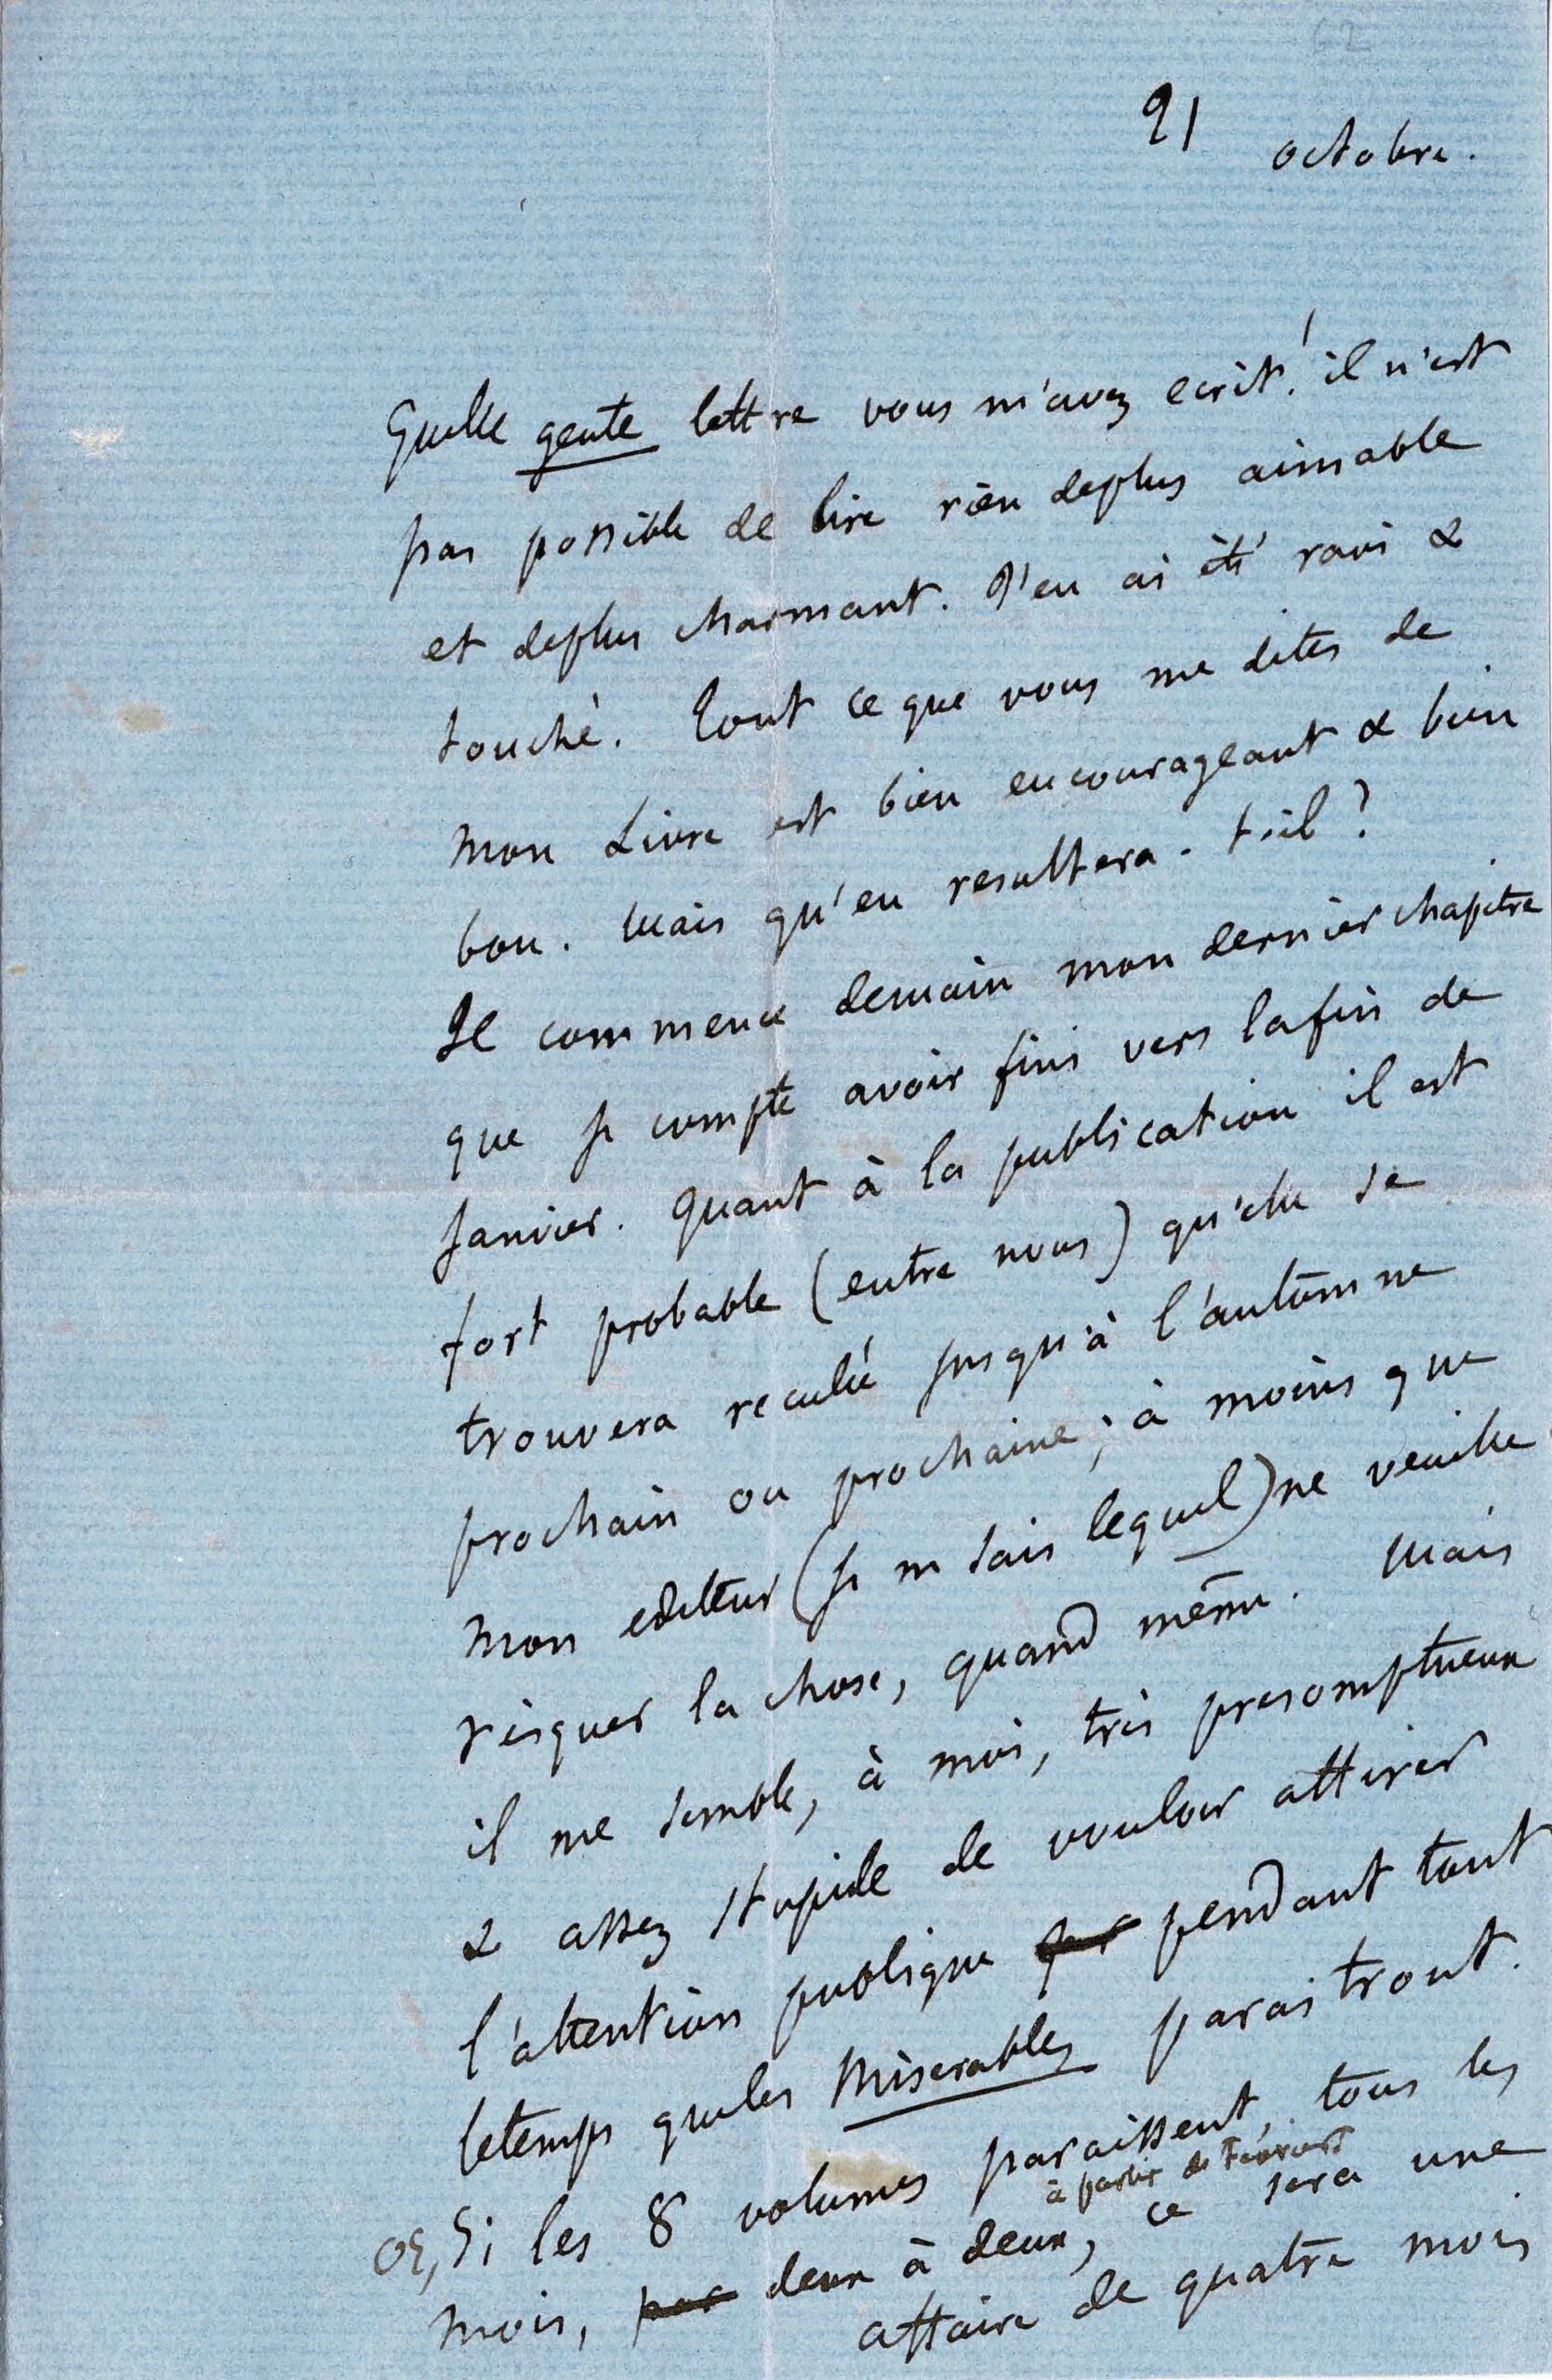 62
21 octobre.
Quelle gente lettre vous m'avez ecrit! il n'est
pas possible de lire rien deplus aimable
et deplus charmant. J'en ai été ravi &
touché. Tout ce que vous me dites de
mon Livre est bien encourageant & bien
bon. Mais qu'en resultera-t-il?
Je commence demain mon dernier chapitre
que je compte avoir fini vers lafin de
Janvier. Quant à la publication il est
fort probable (entre nous) qu'elle se
trouvera reculée jusqu'à l'automne
prochain ou prochaine; à moins que
mon editeur (je ne sais lequel) ne veuille
risquer la chose, quand même. Mais
il me semble, à moi, très presomptueux
& assez stupide de vouloir attirer
l'attention publique pendant tout
letemps queles Miserables paraitront.
or, Si les 8 volumes paraissent, tous les
à partir de Février
mois, par deux à deux, ce sera une
affaire de quatre mois